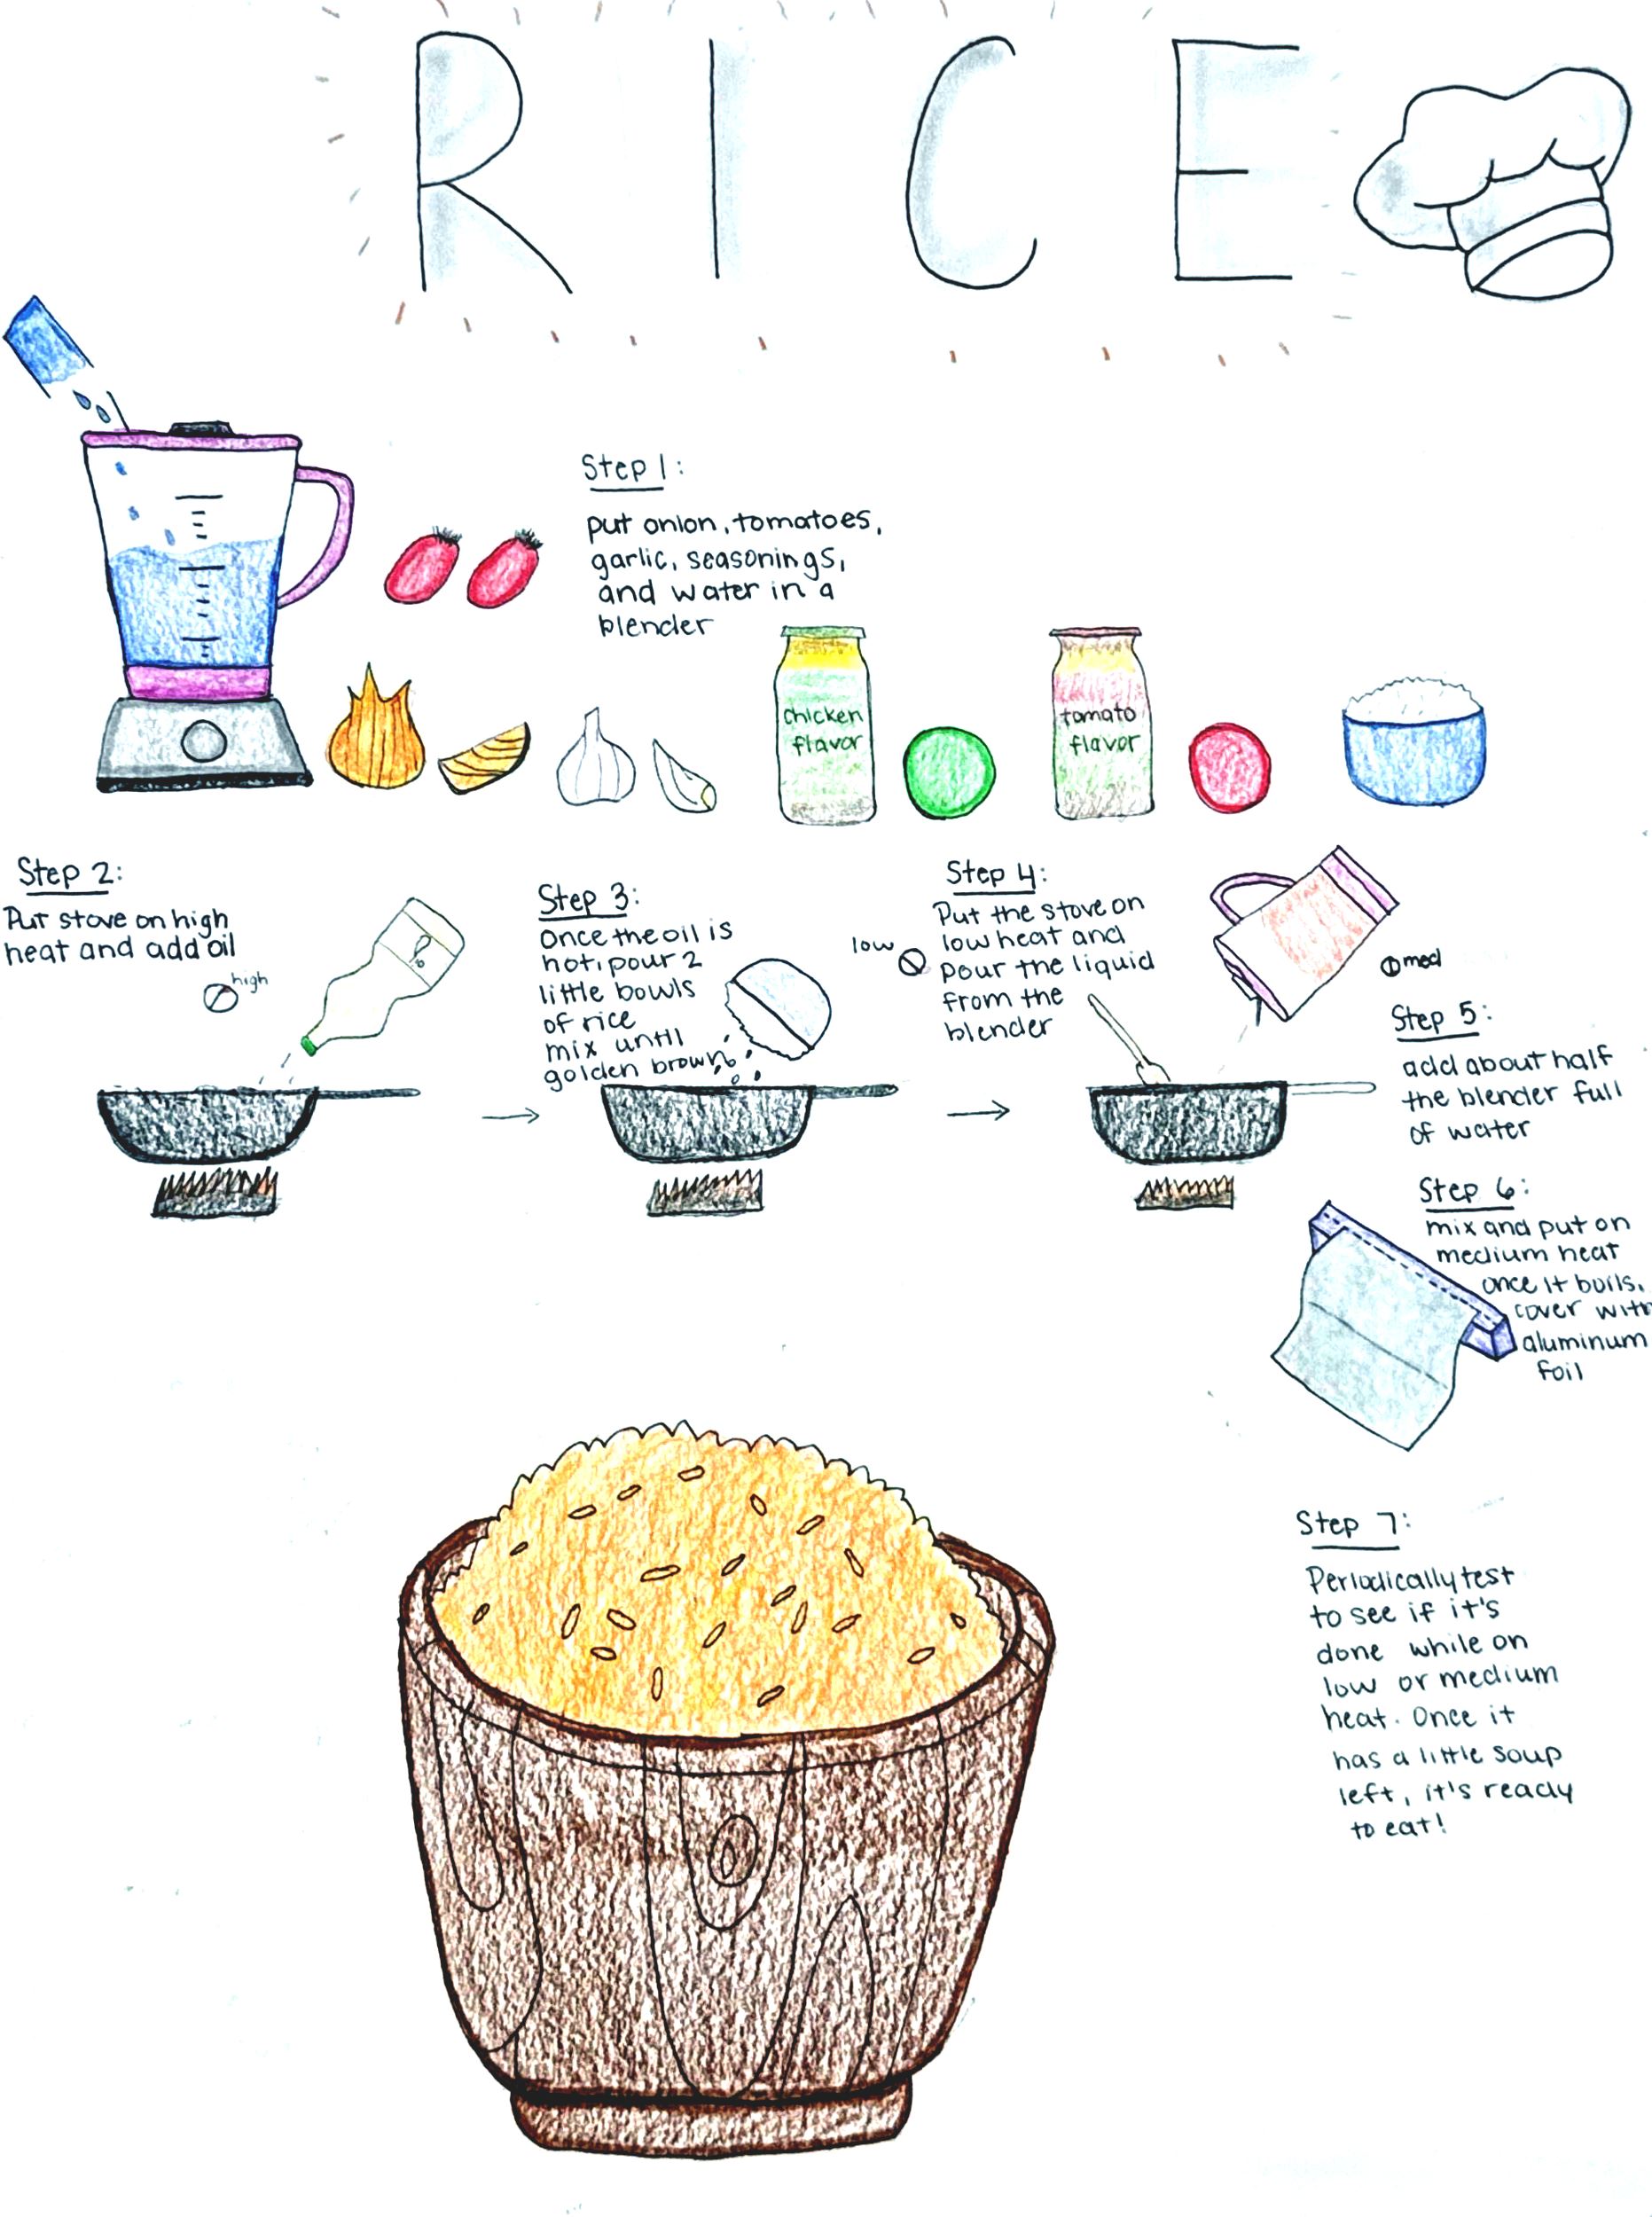 RICE
Step 1:
put onion, tomatoes,
garlic, seasonings,
and water in a
blender
chicken
flavor
tomato
flavor
Step 2:
Put stove on high
heat and add oil
high
Step 3:
Once the oil is
hot, pour 2
little bowls
of rice
mix until
golden brown
Step 4:
Put the stove on
low heat and
pour the liquid
from the
blender
low
med
Step 5:
add about half
the blender full
of water
Step 6:
mix and put on
medium heat
once it boils.
cover with
aluminum
foil
Step 7:
Periodically test
to see if it's
done while on
low or medium
heat. Once it
has a little soup
left, it's ready
to eat!